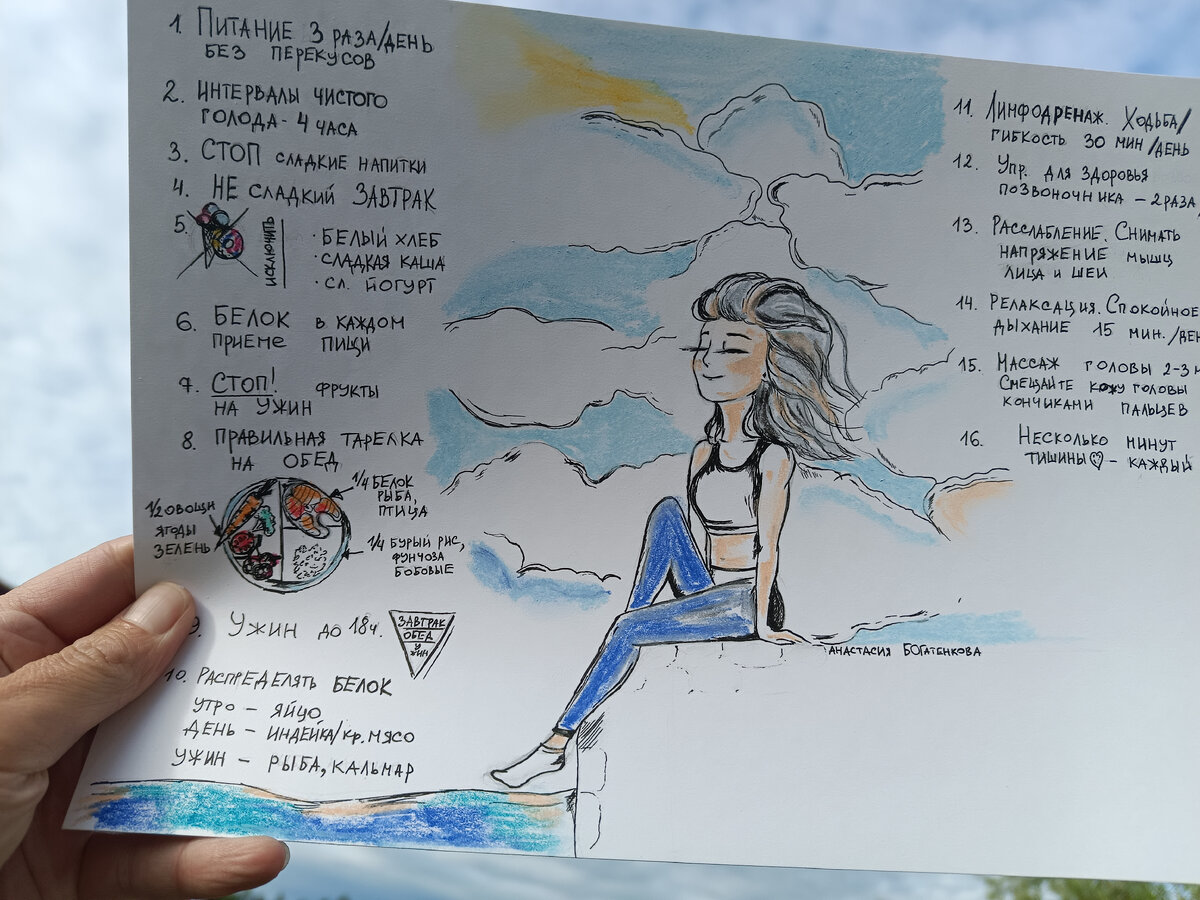 1. ПИТАНИЕ 3 РАЗА/ДЕНЬ
БЕЗ ПЕРЕКУСОВ
2. ИНТЕРВАЛЫ ЧИСТОГО
ГОЛОДА - 4 ЧАСА
3. СТОП СЛАДКИЕ НАПИТКИ
4. НЕ СЛАДКИЙ ЗАВТРАК
5.
ИСКЛЮЧИТЬ
· БЕЛЫЙ ХЛЕБ
· СЛАДКАЯ КАША
· СЛ. ЙОГУРТ
6. БЕЛОК В КАЖДОМ
ПРИЕМЕ ПИЩИ
7. СТОП! ФРУКТЫ
НА УЖИН
8. ПРАВИЛЬНАЯ ТАРЕЛКА
НА ОБЕД
1/2 ОВОЩИ
ЯГОДЫ
ЗЕЛЕНЬ
1/4 БЕЛОК
РЫБА,
ПТИЦА
1/4 БУРЫЙ РИС,
ФУНЧОЗА
БОБОВЫЕ
9. УЖИН ДО 18Ч.
ЗАВТРАК
ОБЕД
УЖИН
10. РАСПРЕДЕЛЯТЬ БЕЛОК
УТРО - ЯЙЦО
ДЕНЬ - ИНДЕЙКА/КР. МЯСО
УЖИН - РЫБА, КАЛЬМАР
11. ЛИМФОДРЕНАЖ. ХОДЬБА/
ГИБКОСТЬ 30 МИН/ДЕНЬ
12. УПР. ДЛЯ ЗДОРОВЬЯ
ПОЗВОНОЧНИКА - 2 РАЗА
13. РАССЛАБЛЕНИЕ. СНИМАТЬ
НАПРЯЖЕНИЕ МЫШЦ
ЛИЦА И ШЕИ
14. РЕЛАКСАЦИЯ. СПОКОЙНОЕ
ДЫХАНИЕ 15 МИН./ДЕН
15. МАССАЖ ГОЛОВЫ 2-3
СМЕЩАЙТЕ КОЖУ ГОЛОВЫ
КОНЧИКАМИ ПАЛЬЦЕВ
16. НЕСКОЛЬКО МИНУТ
ТИШИНЫ♡ - КАЖДЫЙ
АНАСТАСИЯ БОГАТЕНКОВА